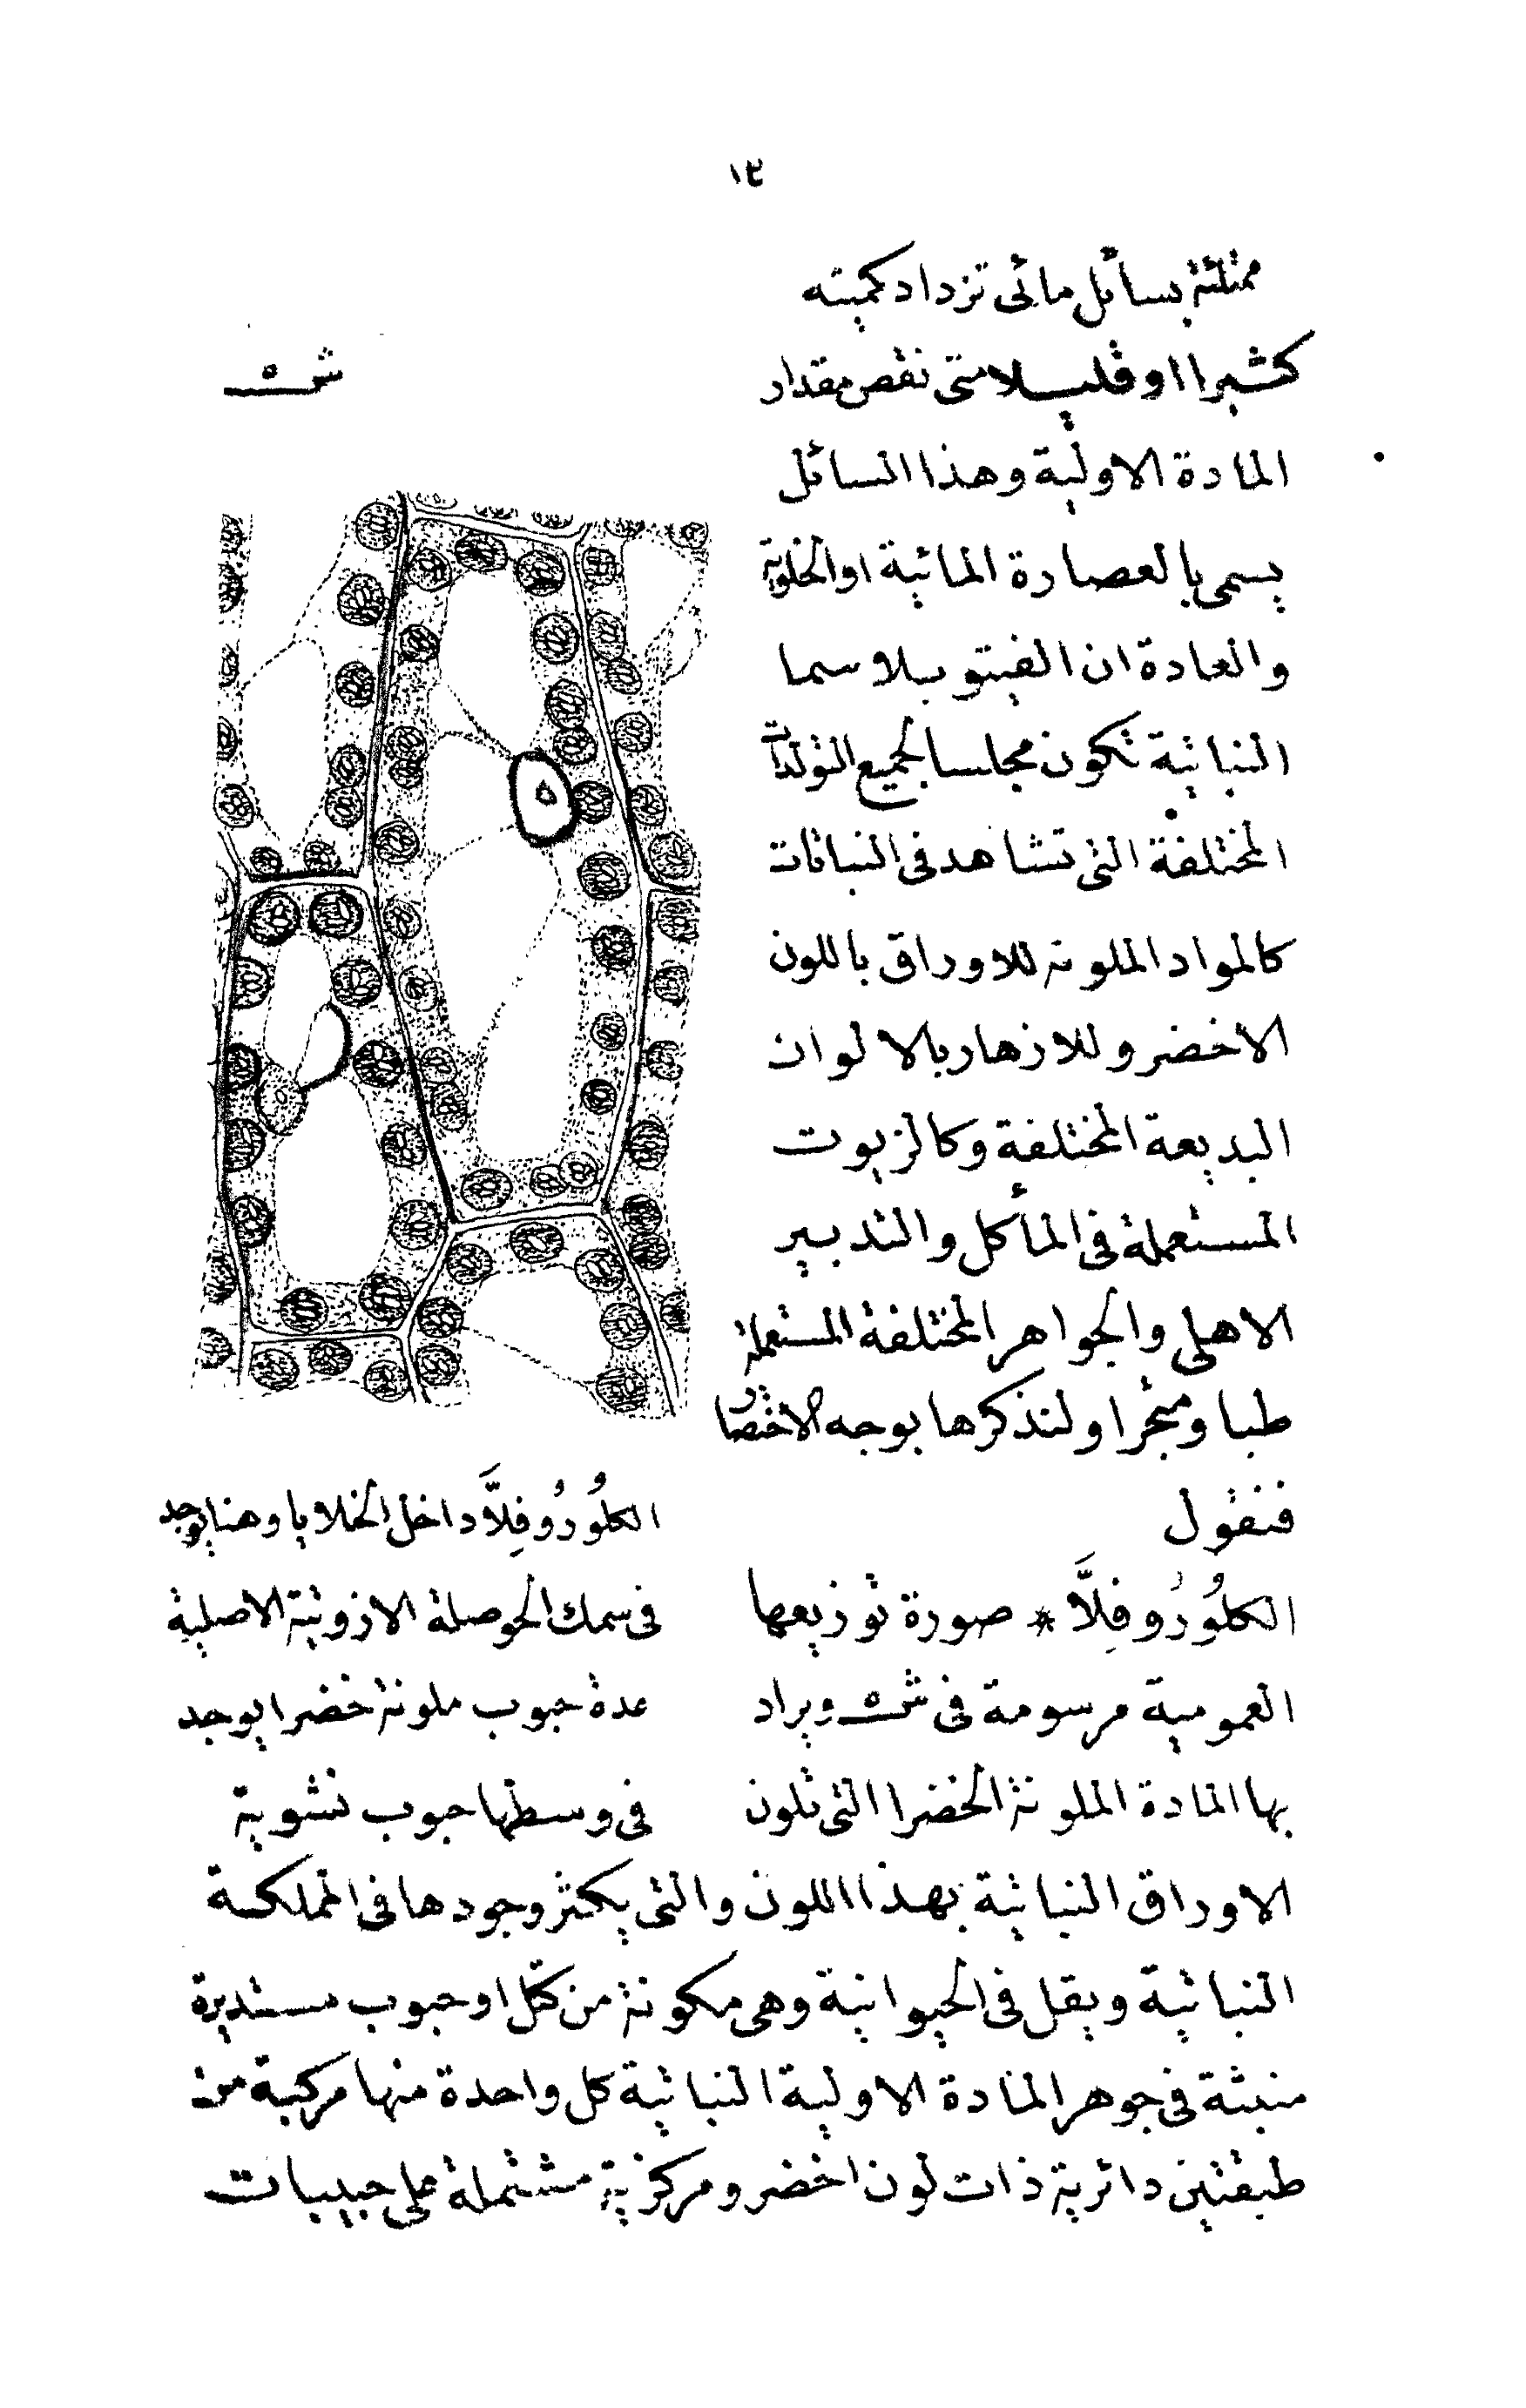 ١٢
ممتلئة بسائل مائى تزداد كميته
كثيرا او قليلا متى نقص مقدار
المادة الاولية وهذا السائل
يسمى بالعصارة المائية او الخلوية
والعادة ان الفيتوبلاسما
النباتية تكون مجلسا لجميع التولدات
المختلفة التى تشاهد فى النباتات
كالمواد الملونه للاوراق باللون
الاخضر وللازهار بالالوان
البديعة المختلفة وكالزيوت
المستعملة فى المأكل والتدبير
الاهلى والجواهر المختلفة المستعملة
طبا ومتجرا ولنذكرها بوجه الاختصار
فنقول
الكلُورُوفِلاَّ * صورة توزيعها
العمومية مرسومة فى شـ ٥ ويراد
بها المادة الملونة الخضرا التى تلون
شـ ٥
الكلُورُوفِلاَّ داخل الخلايا وهنا يوجد
فى سمك الحوصلة الازوتية الاصلية
عدة حبوب ملونة خضرا يوجد
فى وسطها حبوب نشوية
الاوراق النباتية بهذا اللون والتى يكثر وجودها فى المملكة
النباتية ويقل فى الحيوانية وهى مكونة من كتل او حبوب مستديرة
منبثة فى جوهر المادة الاولية النباتية كل واحدة منها مركبة من
طبقتين دائرية ذات لون اخضر ومركزية مشتملة على حبيبات